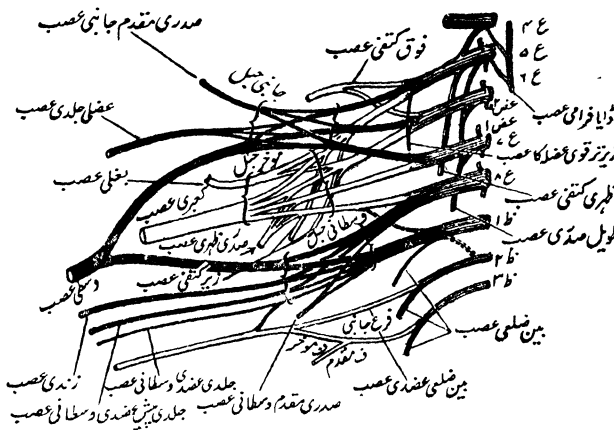 صدری مقدم جانبی عصب
فوق کتفی عصب
ع ۴
ع ۵
ع ۶
جانبی حبل
عضلی جلدی عصب
ڈایا فرامی عصب
عض ۲
عض ۱
ع ۷
زیر ترقوی عضلہ کا عصب
موخر حبل
بغلی عصب
کعبری عصب
ع ۸
ظہری کتفی عصب
وسطانی حبل
صدری ظہری عصب
ظ ۱
طویل صدری عصب
زیر کتفی عصب
وسطی عصب
ظ ۲
ظ ۳
فرع جانبی
بین ضلعی عصب
ف موخر
ف مقدم
زندی عصب
جلدی عضدی وسطانی عصب
بین ضلعی عضدی عصب
جلدی پیش عضدی وسطانی عصب
صدری مقدم وسطانی عصب